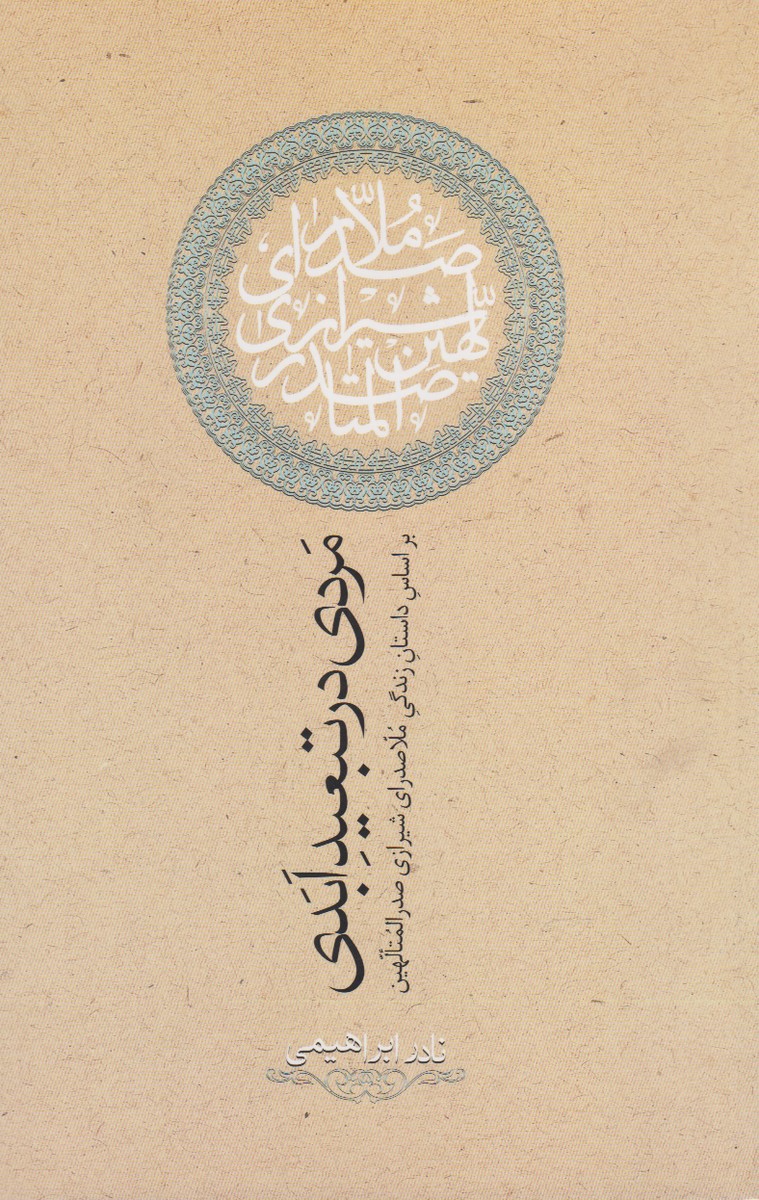 ملّا صدرای
شیرازی
صدر المتألّهین
مَردی در تبعیدِ اَبَدی
بر اساسِ داستانِ زندگیِ مُلّاصدرای شیرازی صدرالمُتألّهین
نادر ابراهیمی